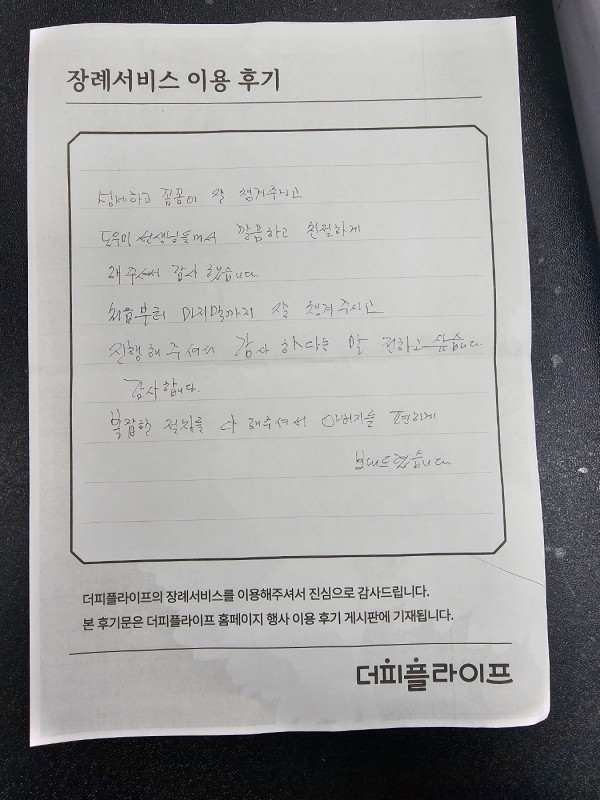 장례서비스 이용 후기
섬세하고 꼼꼼이 잘 챙겨주시고
도우미 선생님들께서 깔끔하고 친절하게
해주셔서 감사했습니다.
처음부터 마지막까지 잘 챙겨주시고
진행해주셔서 감사하다는 말 전하고 싶습니다.
감사합니다.
복잡한 절차를 다 해주셔서 아버지를 편하게
보내드렸습니다.
더피플라이프의 장례서비스를 이용해주셔서 진심으로 감사드립니다.
본 후기문은 더피플라이프 홈페이지 행사 이용 후기 게시판에 기재됩니다.
더피플라이프